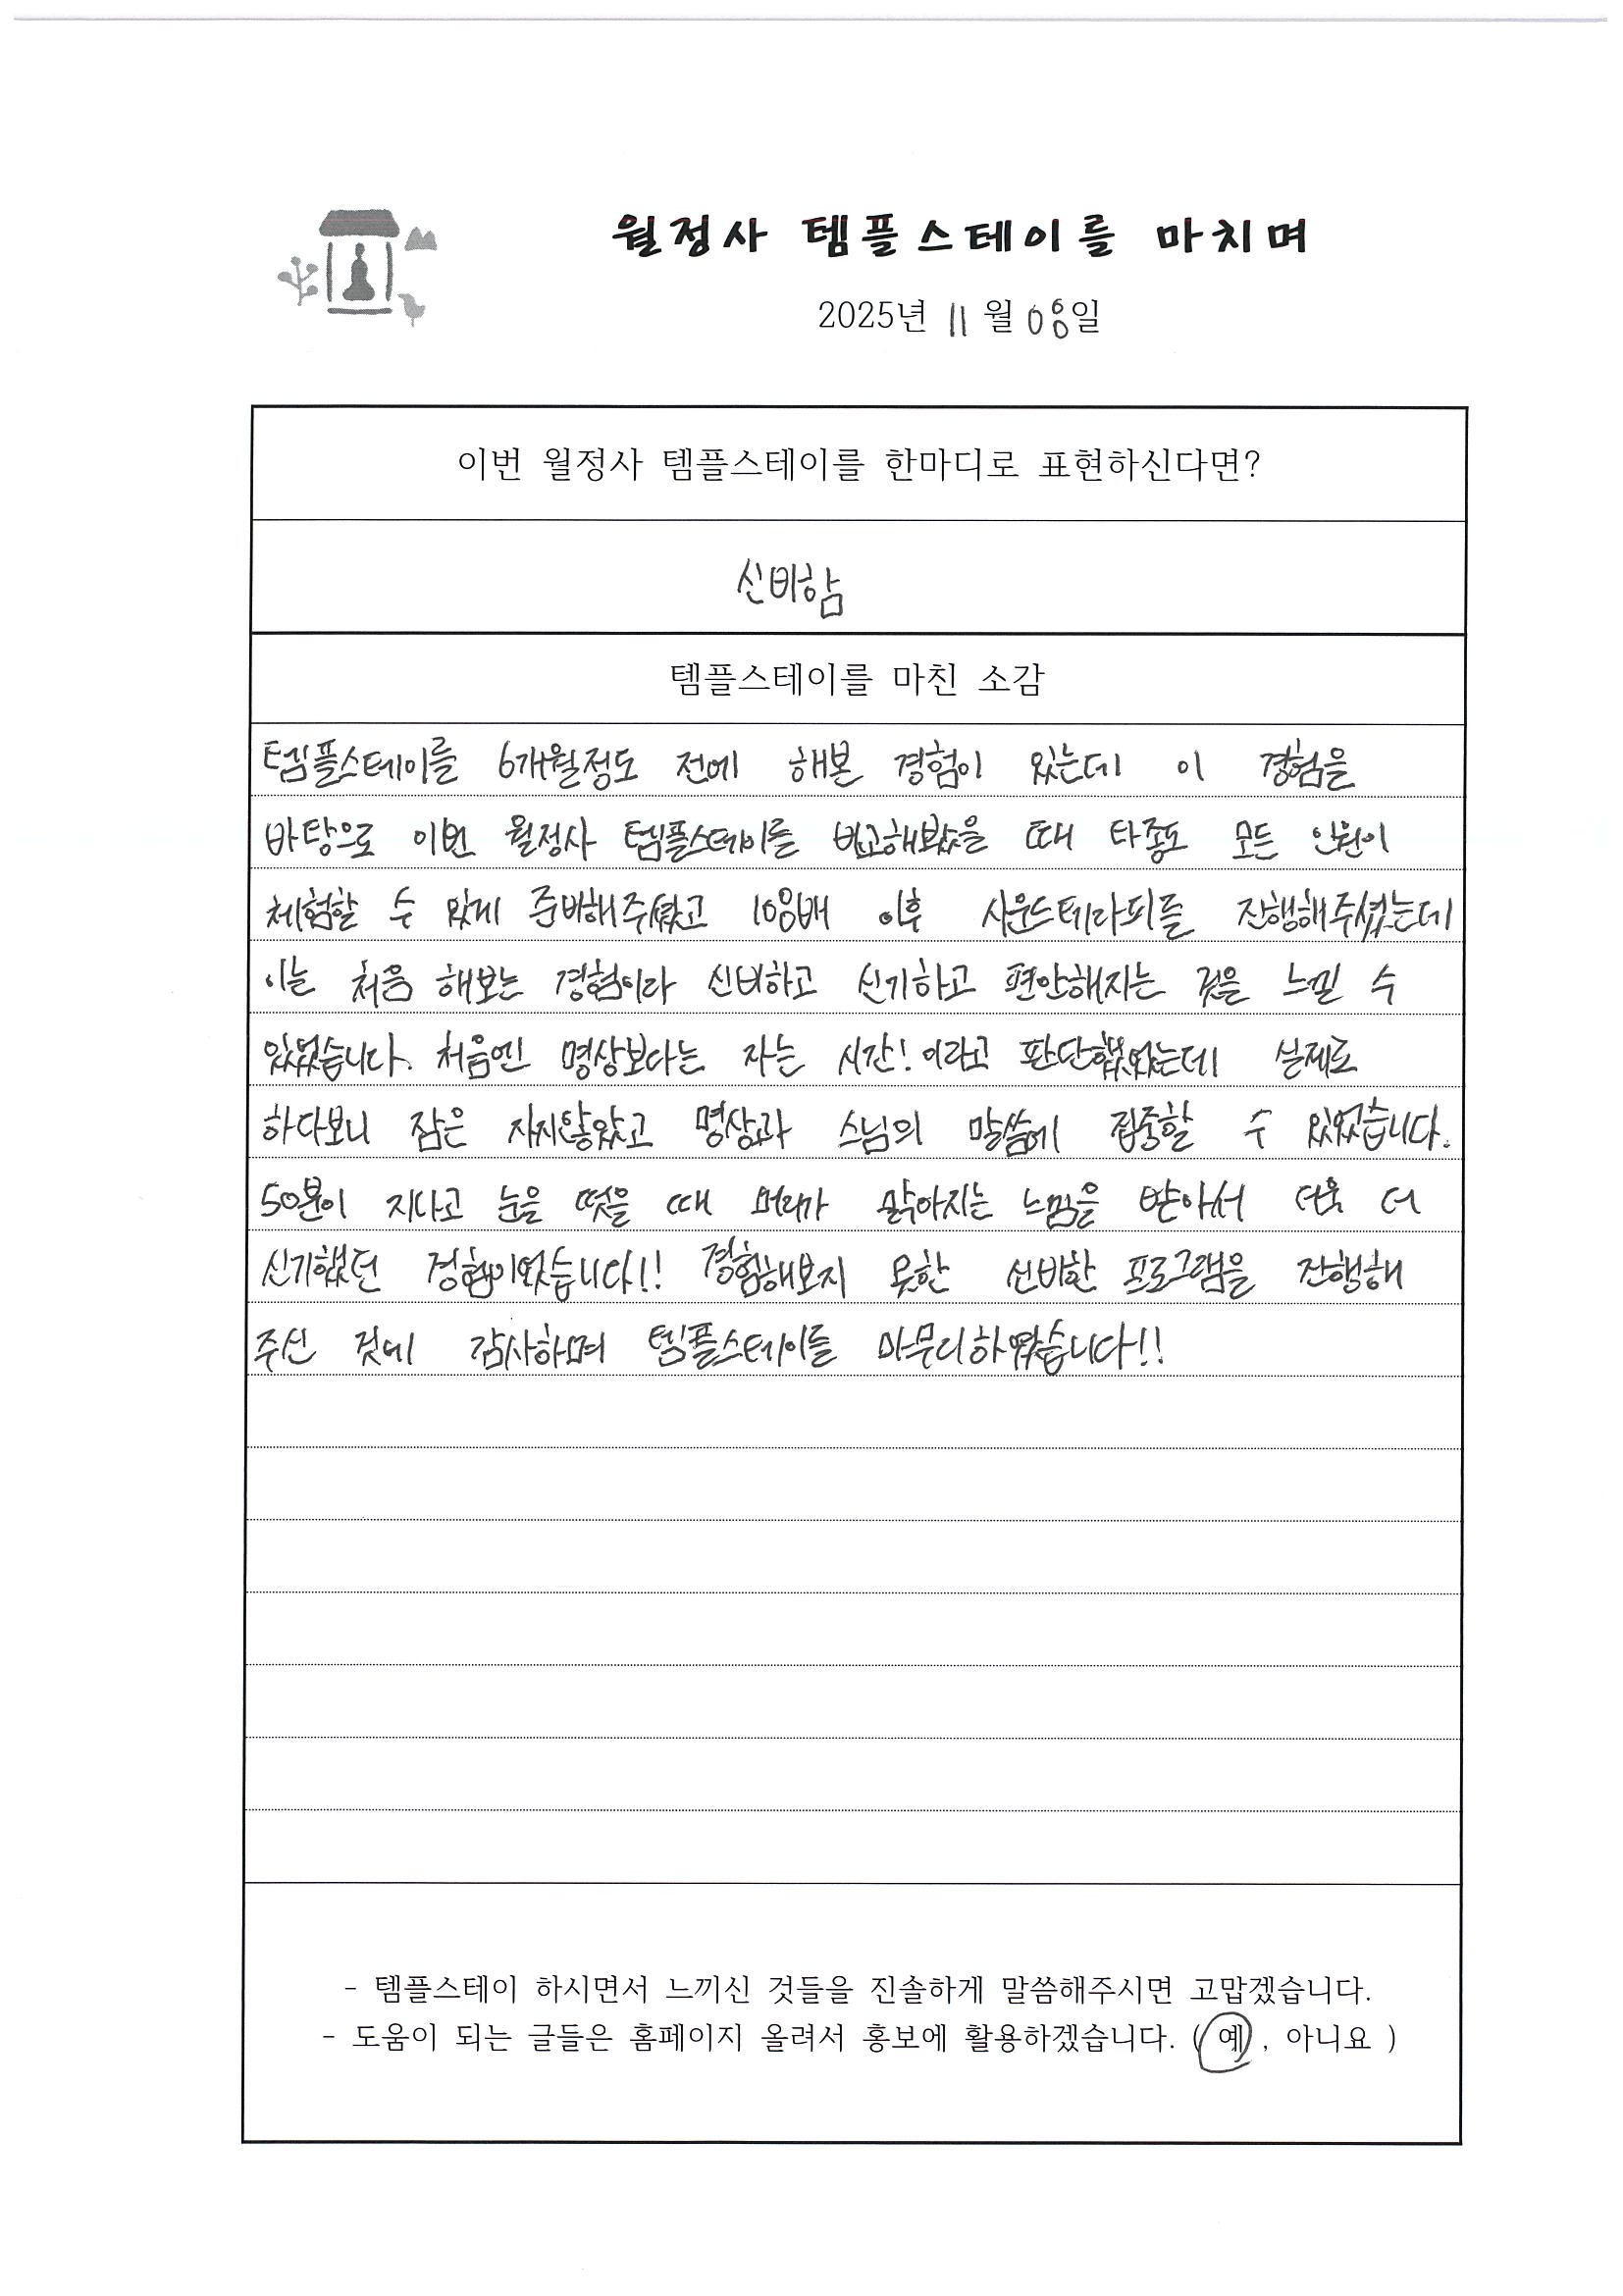 월정사 템플스테이를 마치며
2025년 11월 08일
이번 월정사 템플스테이를 한마디로 표현하신다면?
신비함
템플스테이를 마친 소감
템플스테이를 6개월정도 전에 해본 경험이 있는데 이 경험을
바탕으로 이번 월정사 템플스테이를 비교해봤을 때 타종도 모든 인원이
체험할 수 있게 준비해주셨고 108배 이후 사운드테라피를 진행해주셨는데
이는 처음 해보는 경험이라 신비하고 신기하고 편안해지는 것을 느낄 수
있었습니다. 처음엔 명상보다는 자는 시간! 이라고 판단했었는데 실제로
하다보니 잠은 자지않았고 명상과 스님의 말씀에 집중할 수 있었습니다.
50분이 지나고 눈을 떳을 때 머리가 맑아지는 느낌을 받아서 더욱 더
신기했던 경험이었습니다!! 경험해보지 못한 신비한 프로그램을 진행해
주신 것에 감사하며 템플스테이를 마무리하였습니다!!
- 템플스테이 하시면서 느끼신 것들을 진솔하게 말씀해주시면 고맙겠습니다.
- 도움이 되는 글들은 홈페이지 올려서 홍보에 활용하겠습니다. ( 예 , 아니요 )